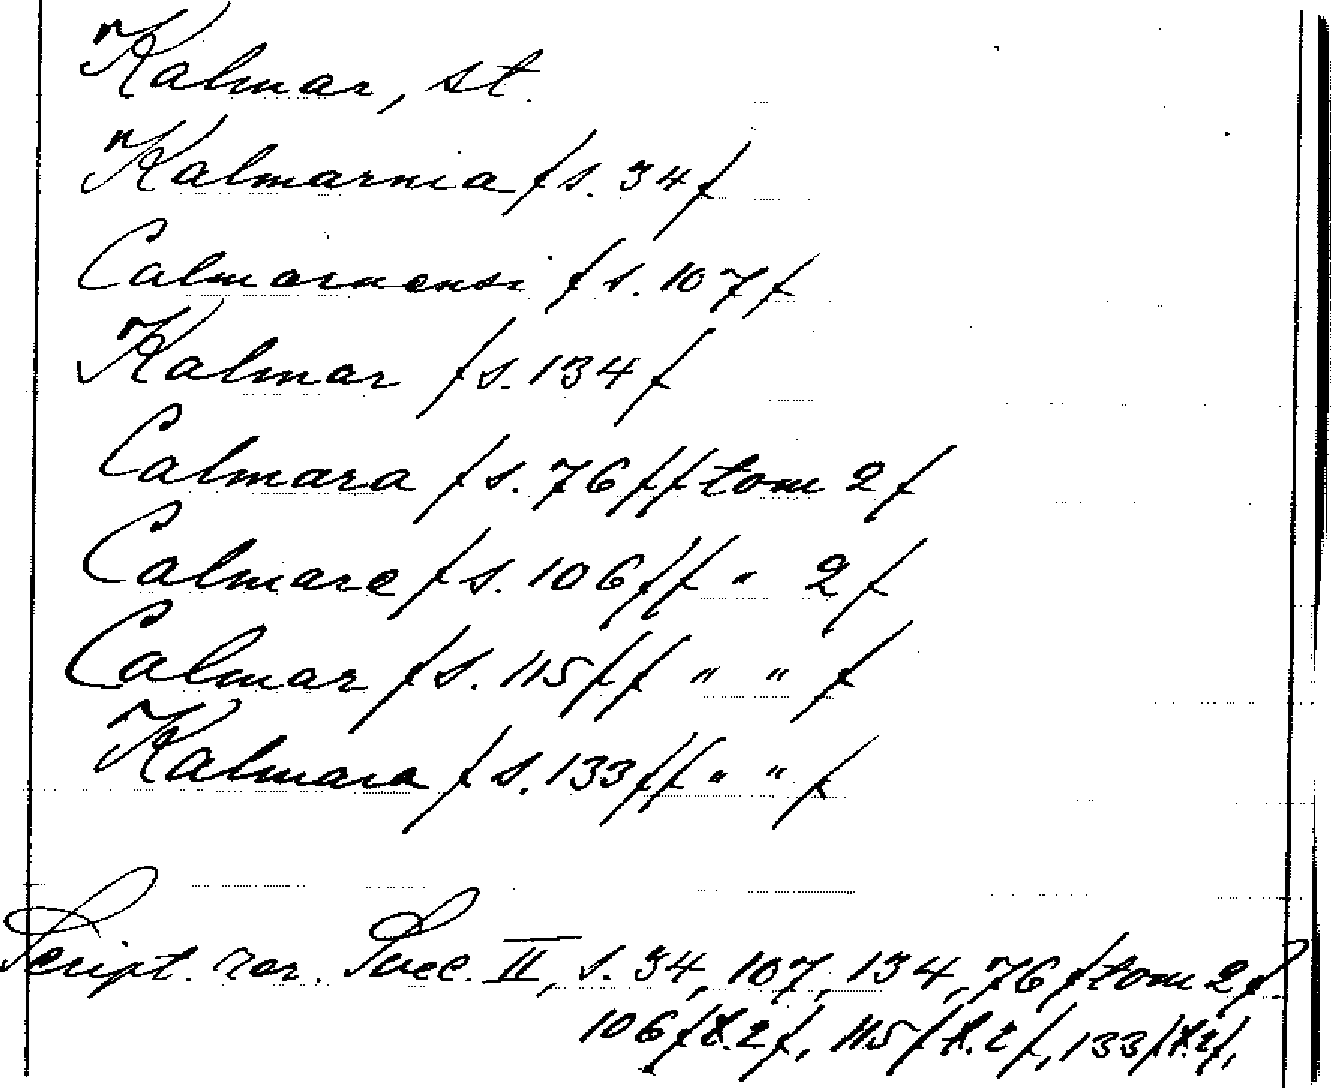 Kalmar, st.
Kalmarnia /s. 34/
Calmarnensi /s. 107/
Kalmar /s. 134/
Calmara /s. 76//tom 2/
Calmare /s. 106// " 2/
Calmar /s. 115// " " /
Kalmara /s. 133// " " /
Script. rer. Svec. II, s. 34, 107, 134, 76/tom 2/
106/t.2/, 115/t.2/, 133/t.2/,